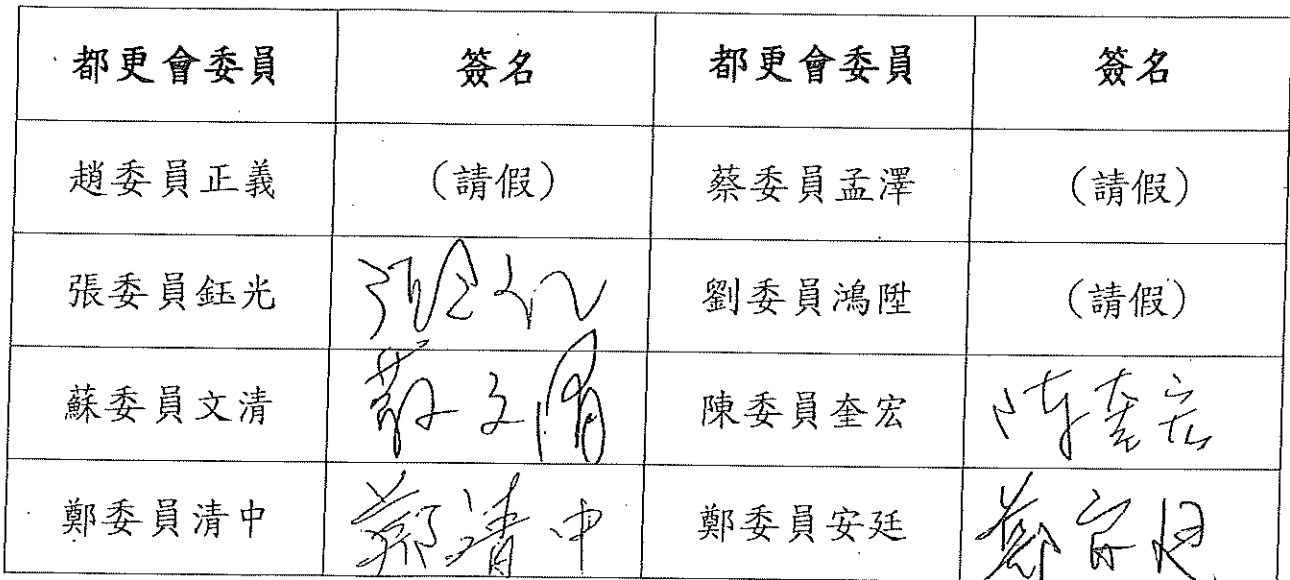 都更會委員 簽名 都更會委員 簽名
趙委員正義 （請假） 蔡委員孟澤 （請假）
張委員鈺光 劉委員鴻陞 （請假）
蘇委員文清 蘇文清 陳委員奎宏 陳奎宏
鄭委員清中 鄭清中 鄭委員安廷 鄭安廷